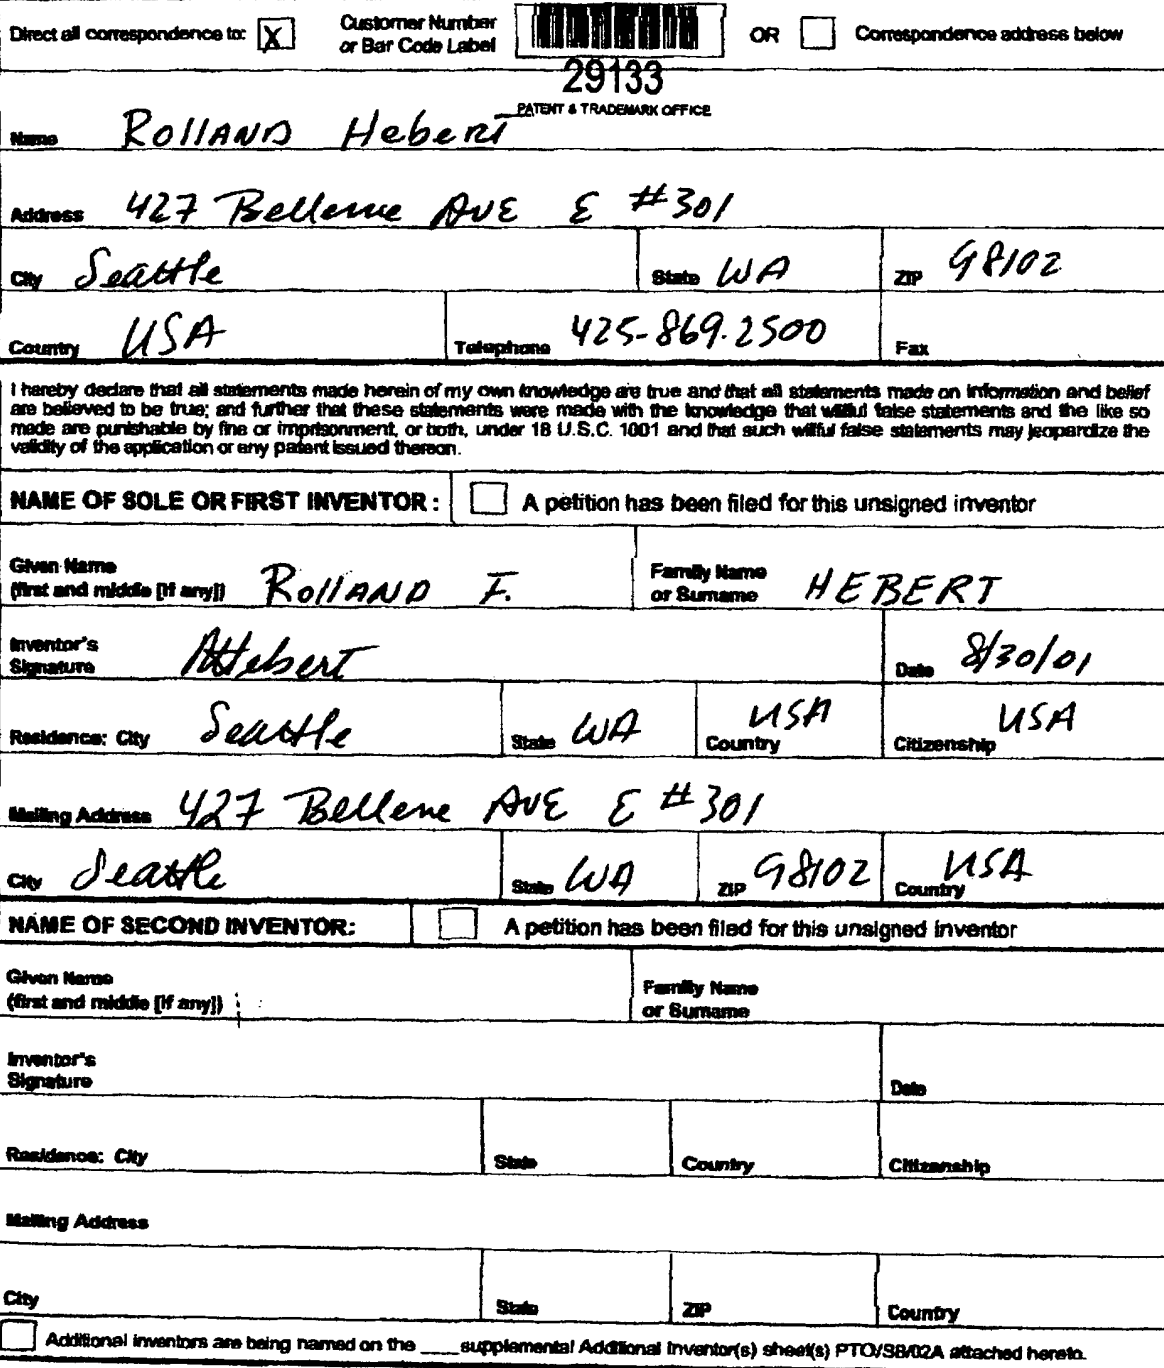 Direct all correspondence to: X Customer Number or Bar Code Label OR Correspondence address below
29133
PATENT & TRADEMARK OFFICE
Name Rolland Hebert
Address 427 Bellevue Ave E #301
City Seattle State WA ZIP 98102
Country USA Telephone 425-869-2500 Fax
I hereby declare that all statements made herein of my own knowledge are true and that all statements made on information and belief
are believed to be true; and further that these statements were made with the knowledge that willful false statements and the like so
made are punishable by fine or imprisonment, or both, under 18 U.S.C. 1001 and that such willful false statements may jeopardize the
validity of the application or any patent issued thereon.
NAME OF SOLE OR FIRST INVENTOR: A petition has been filed for this unsigned inventor
Given Name
(first and middle [if any]) Rolland F. Family Name or Surname HEBERT
Inventor's
Signature Hebert Date 8/30/01
Residence: City Seattle State WA Country USA Citizenship USA
Mailing Address 427 Bellevue Ave E #301
City Seattle State WA ZIP 98102 Country USA
NAME OF SECOND INVENTOR: A petition has been filed for this unsigned inventor
Given Name
(first and middle [if any]) Family Name or Surname
Inventor's
Signature Date
Residence: City State Country Citizenship
Mailing Address
City State ZIP Country
Additional inventors are being named on the ____ supplemental Additional Inventor(s) sheet(s) PTO/SB/02A attached hereto.